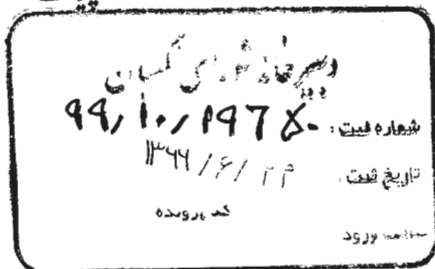 دبیرخانه شورای نگهبان
شماره ثبت: ۹۹/۱۰/۱۹۶۷۵۰
تاریخ ثبت: ۱۳۹۹/۶/۲۳
کد پرونده
ساعت ورود